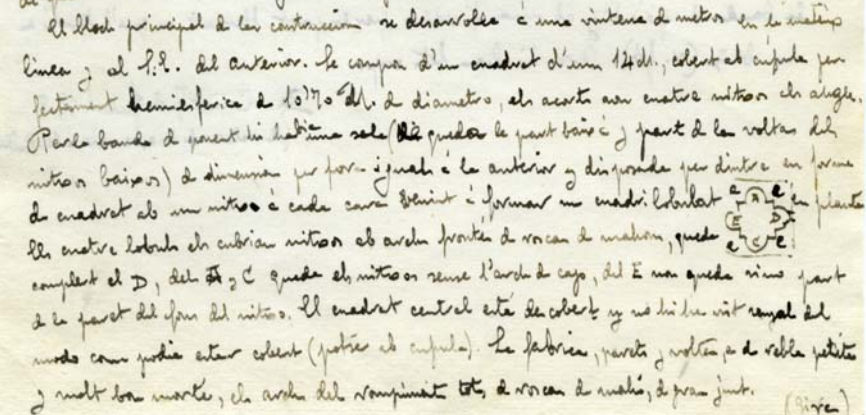 El bloch principal de les contruccions se desarrolla á una vintena d metros en la mateix
linea y al S.E. del anterior. Se compon d'un cuadrat d'uns 14 M., cobert ab cúpula per
fectament hemiesferica de 10'70 M. de diametro, els acorts son cuatre nitxos els angles.
Per la banda d ponent hi habia una sala ( queda la part baix é y part d les voltas dels
nitxos baixos) d dimensions per fora iguals á la anterior y disposada per dintre en forma
de cuadrat ab un nitxo á cada cara venint á formar un cuadrilobulat en planta
Els cuatre lobuls els cubrian nitxos ab archs frontés d roscas de mahons, queda
a A e
E D
a C e
complert el D, dels A y C queda els nitxos sense l'arch de cap, del E non queda sino part
d la paret del fons del nitxo. El cuadrat central está descobert y no hi he vist senyal del
modo com podia estar cobert (potser ab cupula). La fabrica, parets y voltes, es d reble petites
y molt bon morte, els archs del rompiment tots d roscas d mahó, d gran junt.
(Gira)